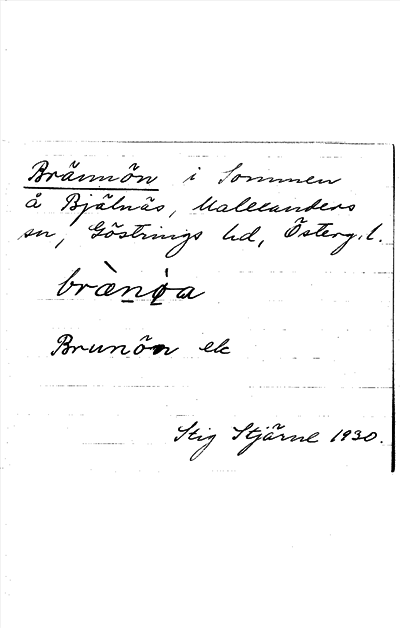 Brännön i Sommen
å Bjälnäs, Malexanders
sn, Göstrings hd, Österg. l.
bræ̀n̠ǿa
Brunön ek
Stig Stjärne 1930.